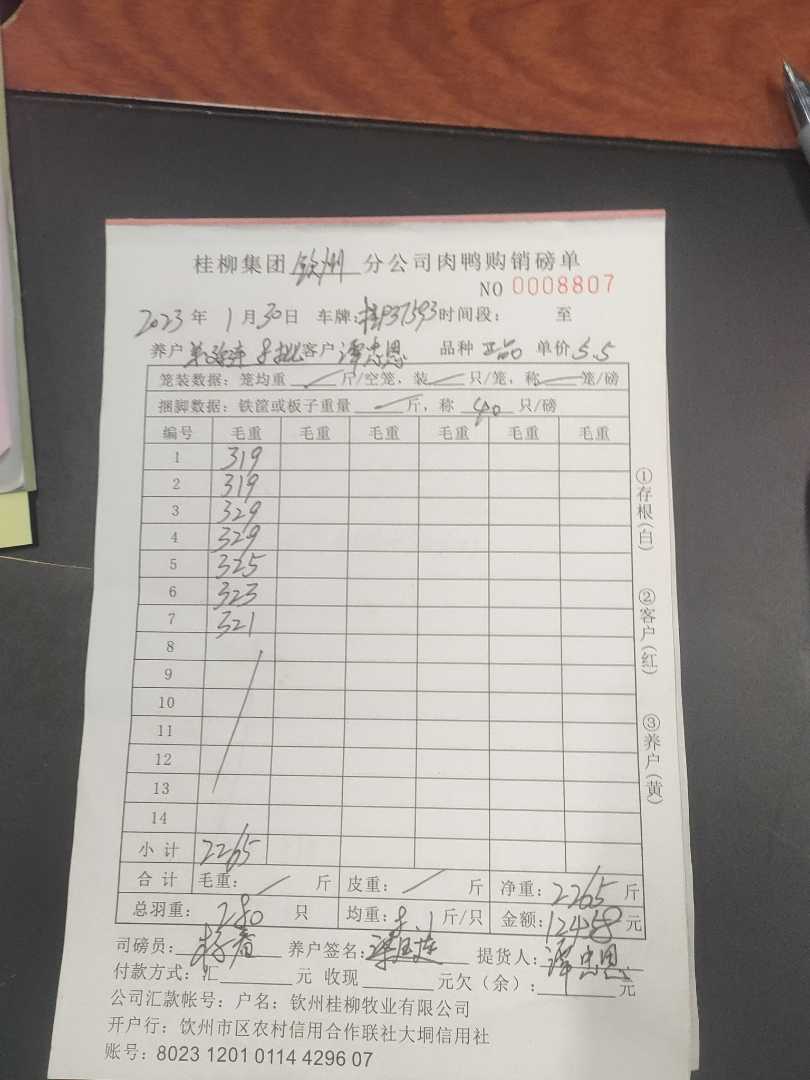 桂柳集团 钦州 分公司肉鸭购销磅单
NO 0008807
2023 年 1 月 30 日 车牌: 桂P37593 时间段: 至
养户 批 客户 谭忠恩 品种 正品 单价 5.5
笼装数据: 笼均重 斤/空笼, 装 只/笼, 称 笼/磅
捆脚数据: 铁筐或板子重量 斤, 称 40 只/磅
编号 毛重 毛重 毛重 毛重 毛重 毛重
1 319
2 319
3 329
4 329
5 325
6 323
7 321
8
9
10
11
12
13
14
小计 2265
合计 毛重: 斤 皮重: 斤 净重: 2265 斤
总羽重: 280 只 均重: 8.1 斤/只 金额: 12458 元
司磅员: 养户签名: 提货人: 谭忠恩
付款方式: 汇 元 收现 元欠(余): 元
公司汇款帐号: 户名: 钦州桂柳牧业有限公司
开户行: 钦州市区农村信用合作联社大垌信用社
账号: 8023 1201 0114 4296 07
①存根(白)
②客户(红)
③养户(黄)